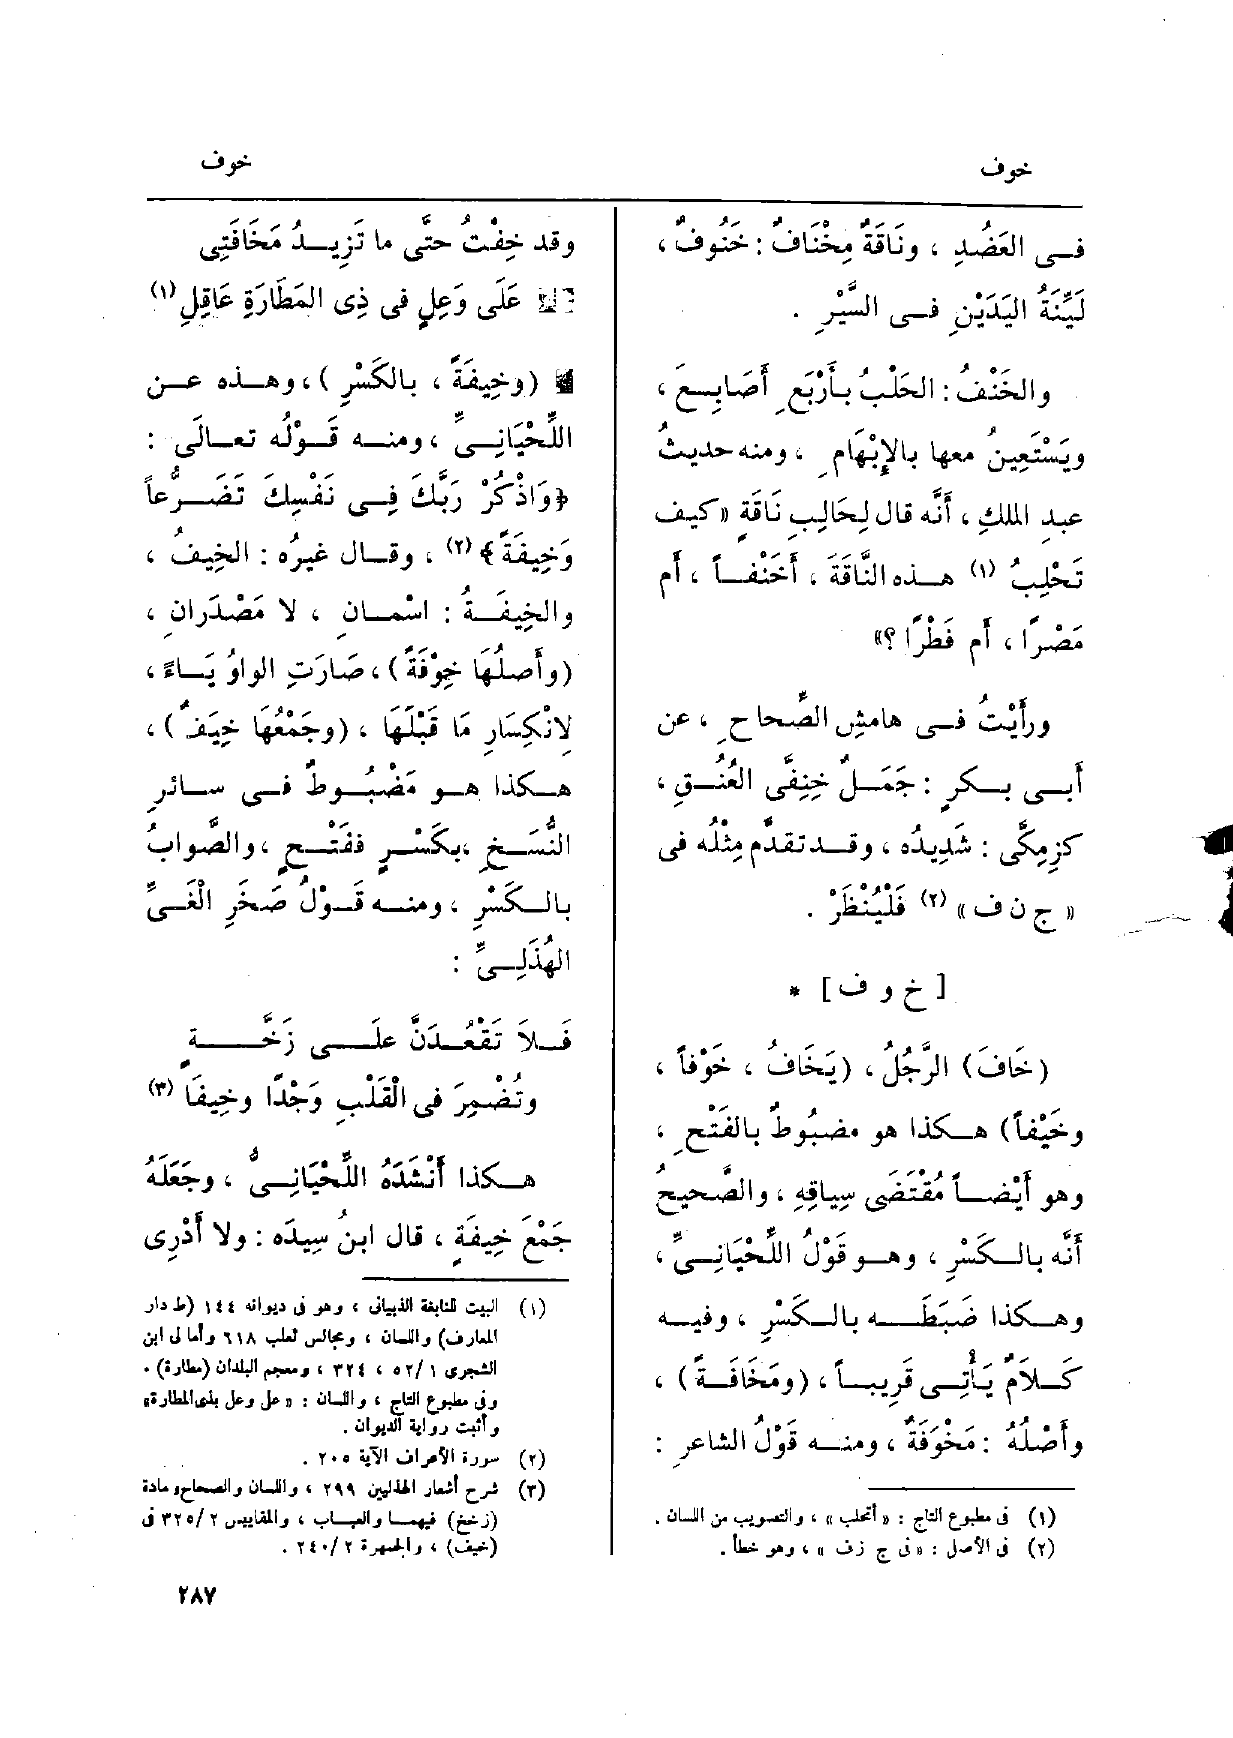 خوف
خوف
فى العَضُدِ ، ونَاقَةٌ مِخْنَافٌ : خَنُوفٌ ،
لَيِّنَةُ اليَدَيْنِ فى السَّيْرِ .
والخَنْفُ : الحَلْبُ بأَرْبَعِ أَصَابِعَ ،
ويَسْتَعِينُ معها بالإِبْهَامِ ، ومنه حديثُ
عبدِ الملكِ ، أَنَّه قال لِحَالِبِ نَاقَةٍ « كيف
تَحْلِبُ (١) هذه النَّاقَةَ ، أَخَنْفاً ، أَم
مَصْرًا ، أَم فَطْرًا ؟»
ورأَيْتُ فى هامشِ الصِّحاحِ ، عن
أَبى بكرٍ : جَمَلٌ خِنِفَّى العُنُقِ ،
كزِمِكَّى : شَدِيدُه ، وقد تقدَّم مِثْلُه فى
« ج ن ف » (٢) فَلْيُنْظَرْ .
[ خ و ف ] *
(خَافَ) الرَّجُلُ ، (يَخَافُ ، خَوْفاً ،
وخَيْفاً) هكذا هو مضبُوطٌ بالفَتْحِ ،
وهو أَيْضاً مُقْتَضَى سِياقِهِ ، والصَّحيحُ
أَنَّه بالكَسْرِ ، وهو قَوْلُ اللِّحْيَانِىِّ ،
وهكذا ضَبَطَه بالكَسْرِ ، وفيه
كَلامٌ يأْتِى قَرِيباً ، (ومَخَافَةً) ،
وأَصْلُهُ : مَخْوَفَةٌ ، ومنه قَوْلُ الشاعرِ :
(١) فى مطبوع التاج : « أتحلب » ، والتصويب من اللسان .
(٢) فى الأصل : « فى ج زف » ، وهو خطأ .
وقد خِفْتُ حتَّى ما تَزِيدُ مَخَافَتِى
عَلَى وَعِلٍ فى ذِى المَطَارَةِ عَاقِلِ (١)
(وخِيفَةً ، بالكَسْرِ) ، وهذه عن
اللِّحْيَانِىِّ ، ومنه قَوْلُه تعالَى :
﴿وَاذْكُرْ رَبَّكَ فِى نَفْسِكَ تَضَرُّعاً
وَخِيفَةً﴾ (٢) ، وقال غيرُه : الخِيفُ ،
والخِيفَةُ : اسْمانِ ، لا مَصْدَرانِ ،
(وأَصلُهَا خِوْفَةٌ) ، صَارَتِ الواوُ يَاءً ،
لانْكِسَارِ مَا قَبْلَهَا ، (وجَمْعُهَا خِيَفٌ) ،
هكذا هو مَضْبُوطٌ فى سائرِ
النُّسَخِ ،بكَسْرٍ ففَتْحٍ ،والصَّوابُ
بالكَسْرِ ، ومنه قَوْلُ صَخْرِ الغَىِّ
الهُذَلِىِّ :
فَلا تَقْعُدَنَّ علَى زَخَّةٍ
وتُضْمِرَ فى القَلْبِ وَجْدًا وخِيفَا (٣)
هكذا أَنْشَدَهُ اللِّحْيَانِىُّ ، وجَعَلَهُ
جَمْعَ خِيفَةٍ ، قال ابنُ سِيدَه : ولا أَدْرِى
(١) البيت للنابغة الذبيانى ، وهو فى ديوانه ١٤٤ (ط دار
المعارف) واللسان ، ومجالس ثعلب ٦١٨ وأمالى ابن
الشجرى ١/ ٥٢ ، ٣٢٤ ، ومعجم البلدان (مطارة) .
وفى مطبوع التاج ، واللسان : « على وعل بذى المطارة»
وأثبت رواية الديوان .
(٢) سورة الأعراف الآية ٢٠٥ .
(٣) شرح أشعار الهذليين ٢٩٩ ، واللسان والصحاح، مادة
(زخخ) فيهما والعباب ، والمقاييس ٢/ ٣٢٥ فى
(خيف) ، والجمهرة ٢/ ٢٤٠ .
٢٨٧